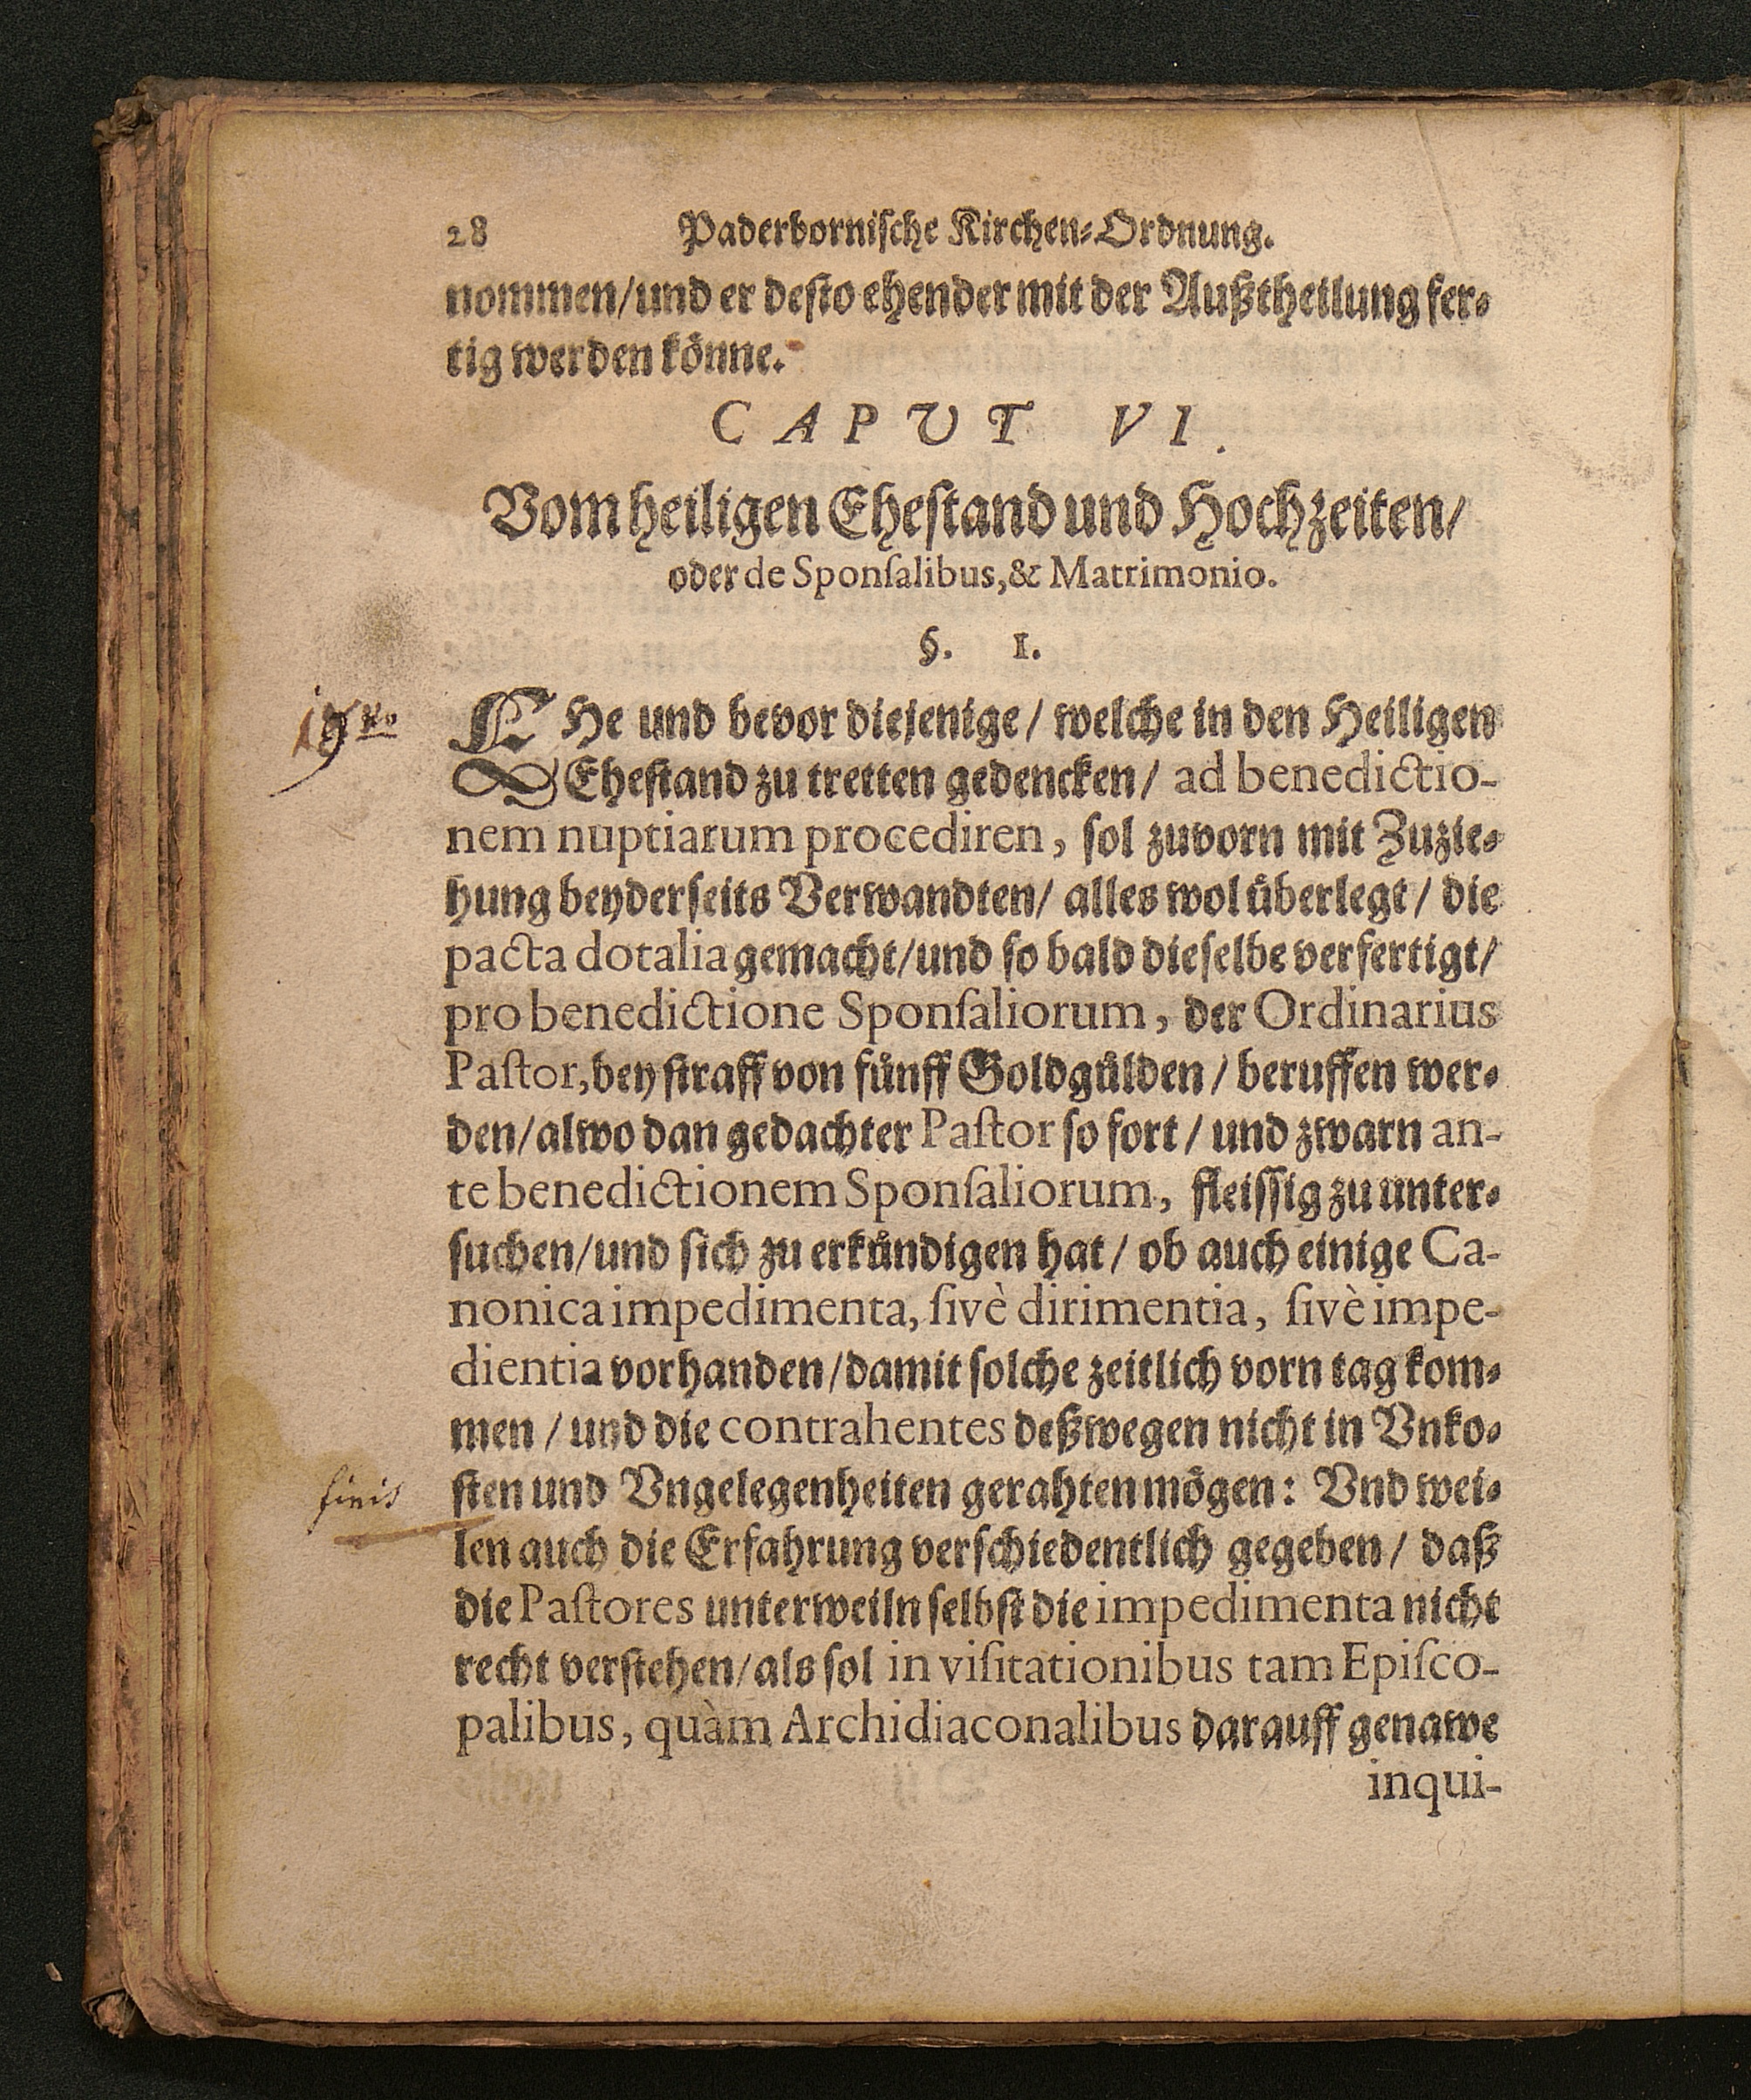 28 Paderbornische Kirchen-Ordnung.
nommen/und er desto ehender mit der Außtheilung fer-
tig werden könne.
CAPUT VI.
Vom heiligen Ehestand und Hochzeiten/
oder de Sponſalibus, & Matrimonio.
§. 1.
EHe und bevor diejenige / welche in den Heiligen
Ehestand zu tretten gedencken / ad benedictio-
nem nuptiarum procediren, sol zuvorn mit Zuzie-
hung beyderseits Verwandten / alles wol überlegt / die
pacta dotalia gemacht/und so bald dieselbe verfertigt/
pro benedictione Sponſaliorum, der Ordinarius
Paſtor, bey straff von fünff Goldgülden / beruffen wer-
den/alwo dan gedachter Paſtor so fort / und zwarn an-
te benedictionem Sponſaliorum, fleissig zu unter-
suchen/und sich zu erkündigen hat / ob auch einige Ca-
nonica impedimenta, ſivè dirimentia, ſivè impe-
dientia vorhanden/damit solche zeitlich vorn tag kom-
men / und die contrahentes deßwegen nicht in Vnko-
finis
sten und Vngelegenheiten gerahten mögen: Vnd wei-
len auch die Erfahrung verschiedentlich gegeben / daß
die Paſtores unterweiln selbst die impedimenta nicht
recht verstehen/als sol in viſitationibus tam Epiſco-
palibus, quàm Archidiaconalibus darauff genawe
inqui-